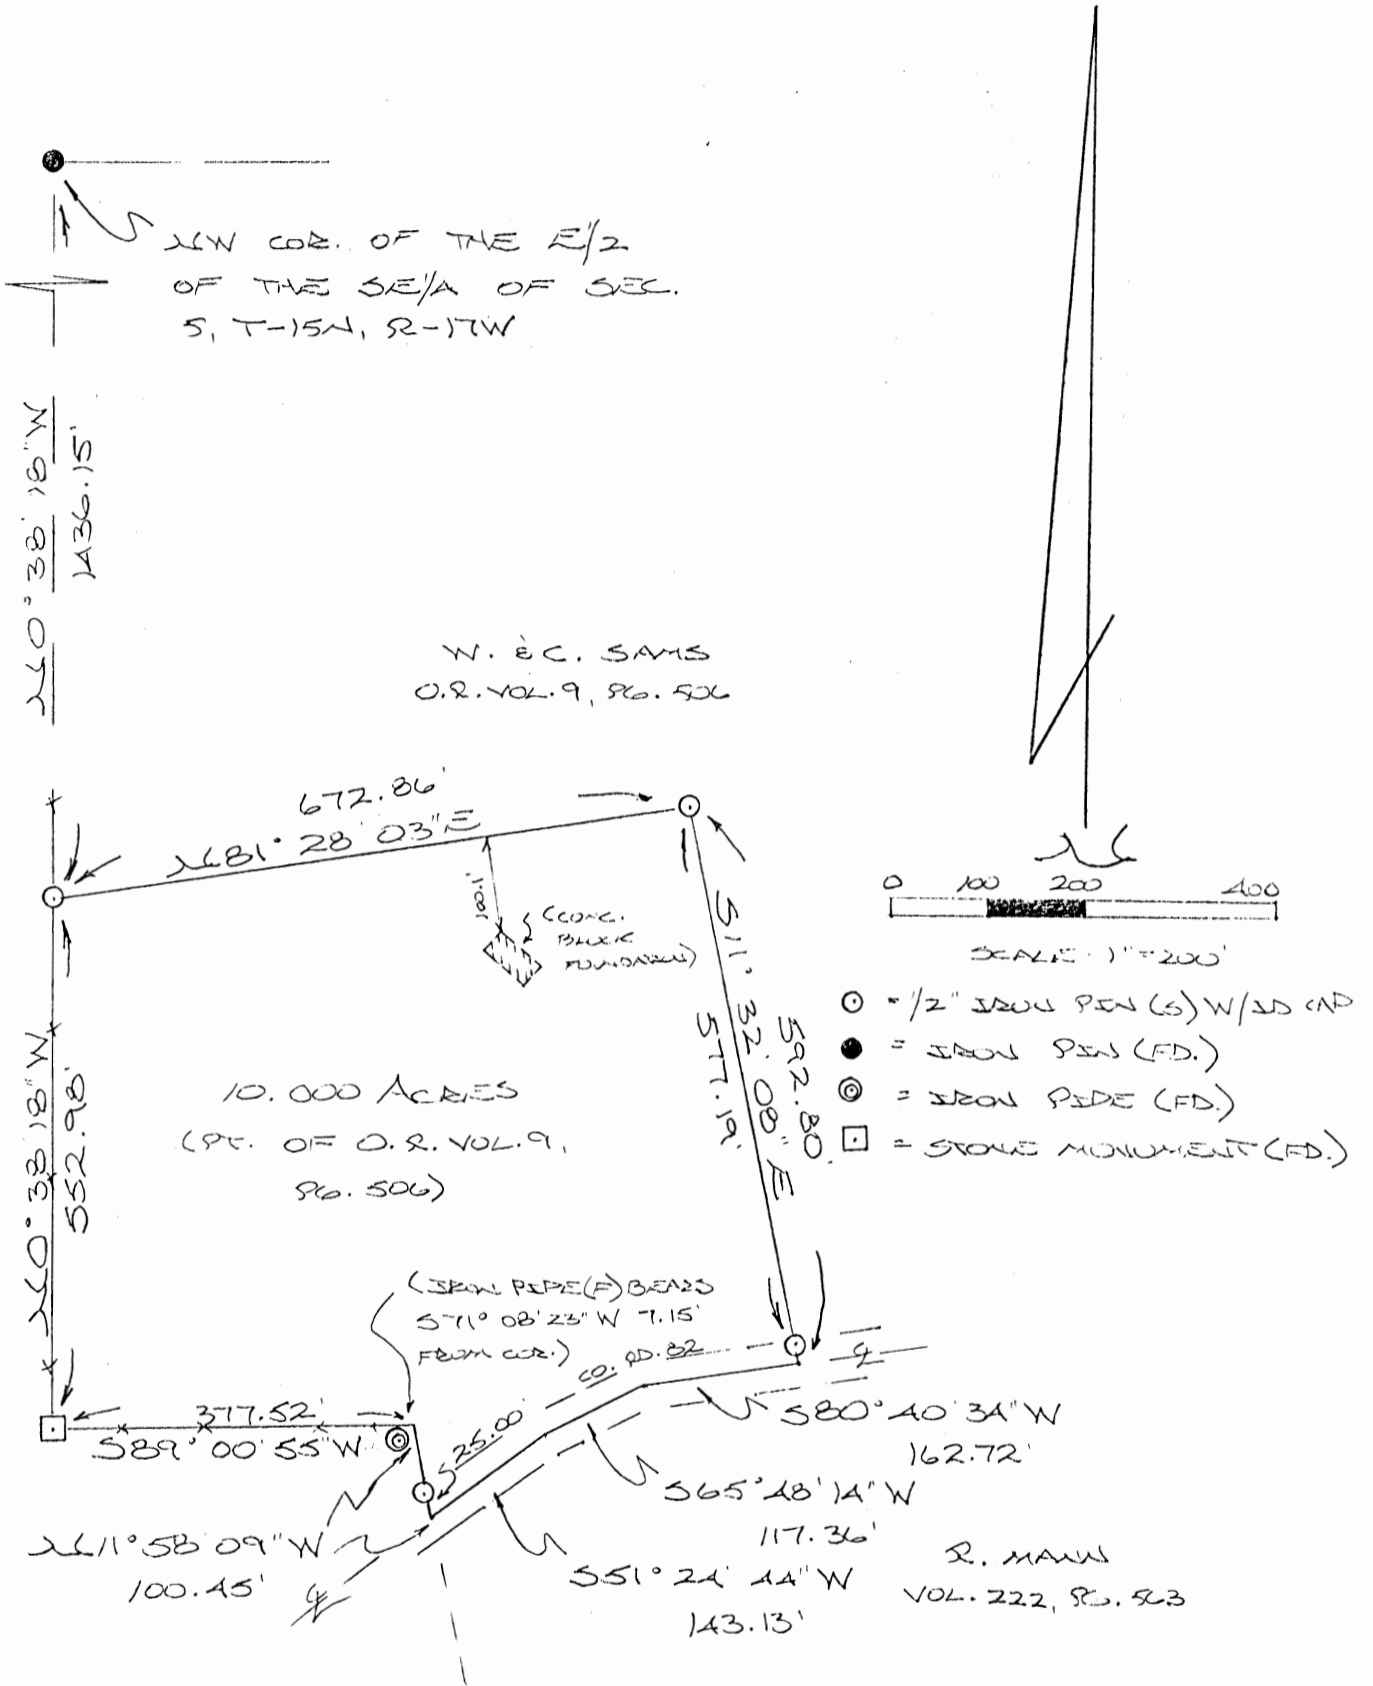 NW COR. OF THE E1/2
OF THE SE1/4 OF SEC.
5, T-15N, R-17W
N0°38'18"W
1436.15'
W. & C. SAMS
O.R. VOL. 9, PG. 506
672.86'
N81°28'03"E
100.1'
(CONC.
BLOCK
FOUNDATION)
S11°32'08"E
592.80'
577.19'
N
0 100 200 400
SCALE: 1"=200'
= 1/2" IRON PIN(S) W/ID CAP
= IRON PIN (FD.)
= IRON PIPE (FD.)
= STONE MONUMENT (FD.)
N0°38'18"W
552.98'
10.000 ACRES
(PT. OF O.R. VOL. 9,
PG. 506)
(IRON PIPE(F) BEARS
S71°08'23"W 7.15'
FROM COR.)
CO. RD. 82
℄
377.52'
S89°00'55"W
25.00'
S80°40'34"W
162.72'
S65°48'14"W
117.36'
N11°58'09"W
100.45'
℄
S51°24'44"W
143.13'
R. MANN
VOL. 222, PG. 563